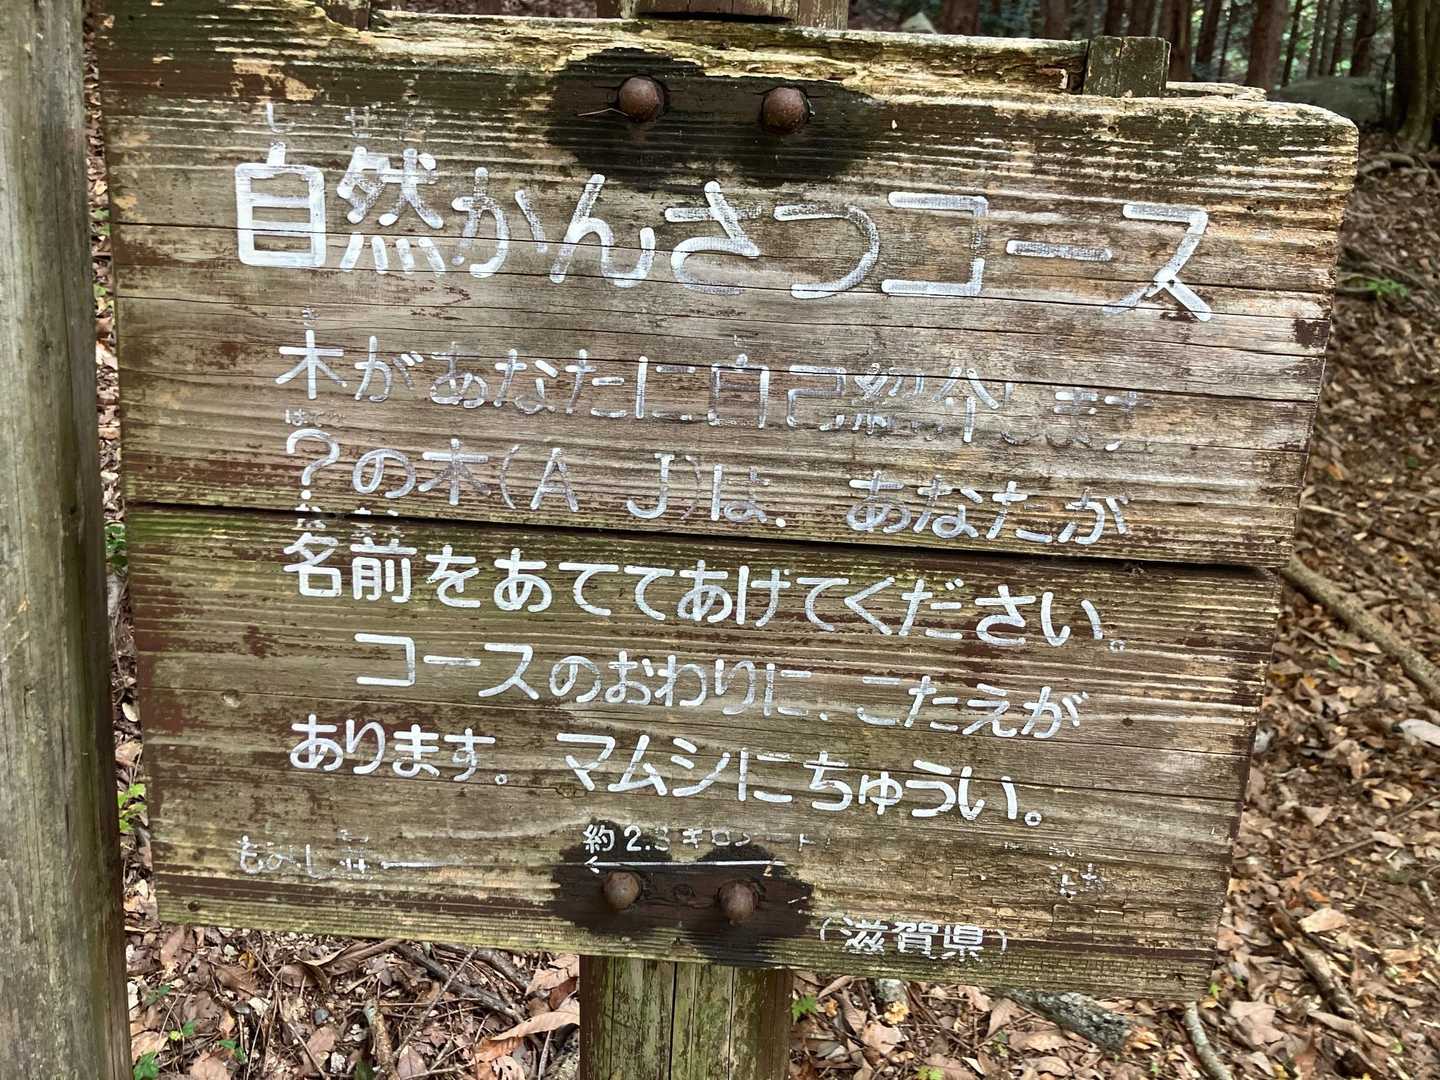 自然かんさつコース
木があなたに自己紹介します
?の木(A J)は、あなたが
名前をあててあげてください。
コースのおわりに、こたえが
あります。マムシにちゅうい。
約2.3キロメートル
(滋賀県)